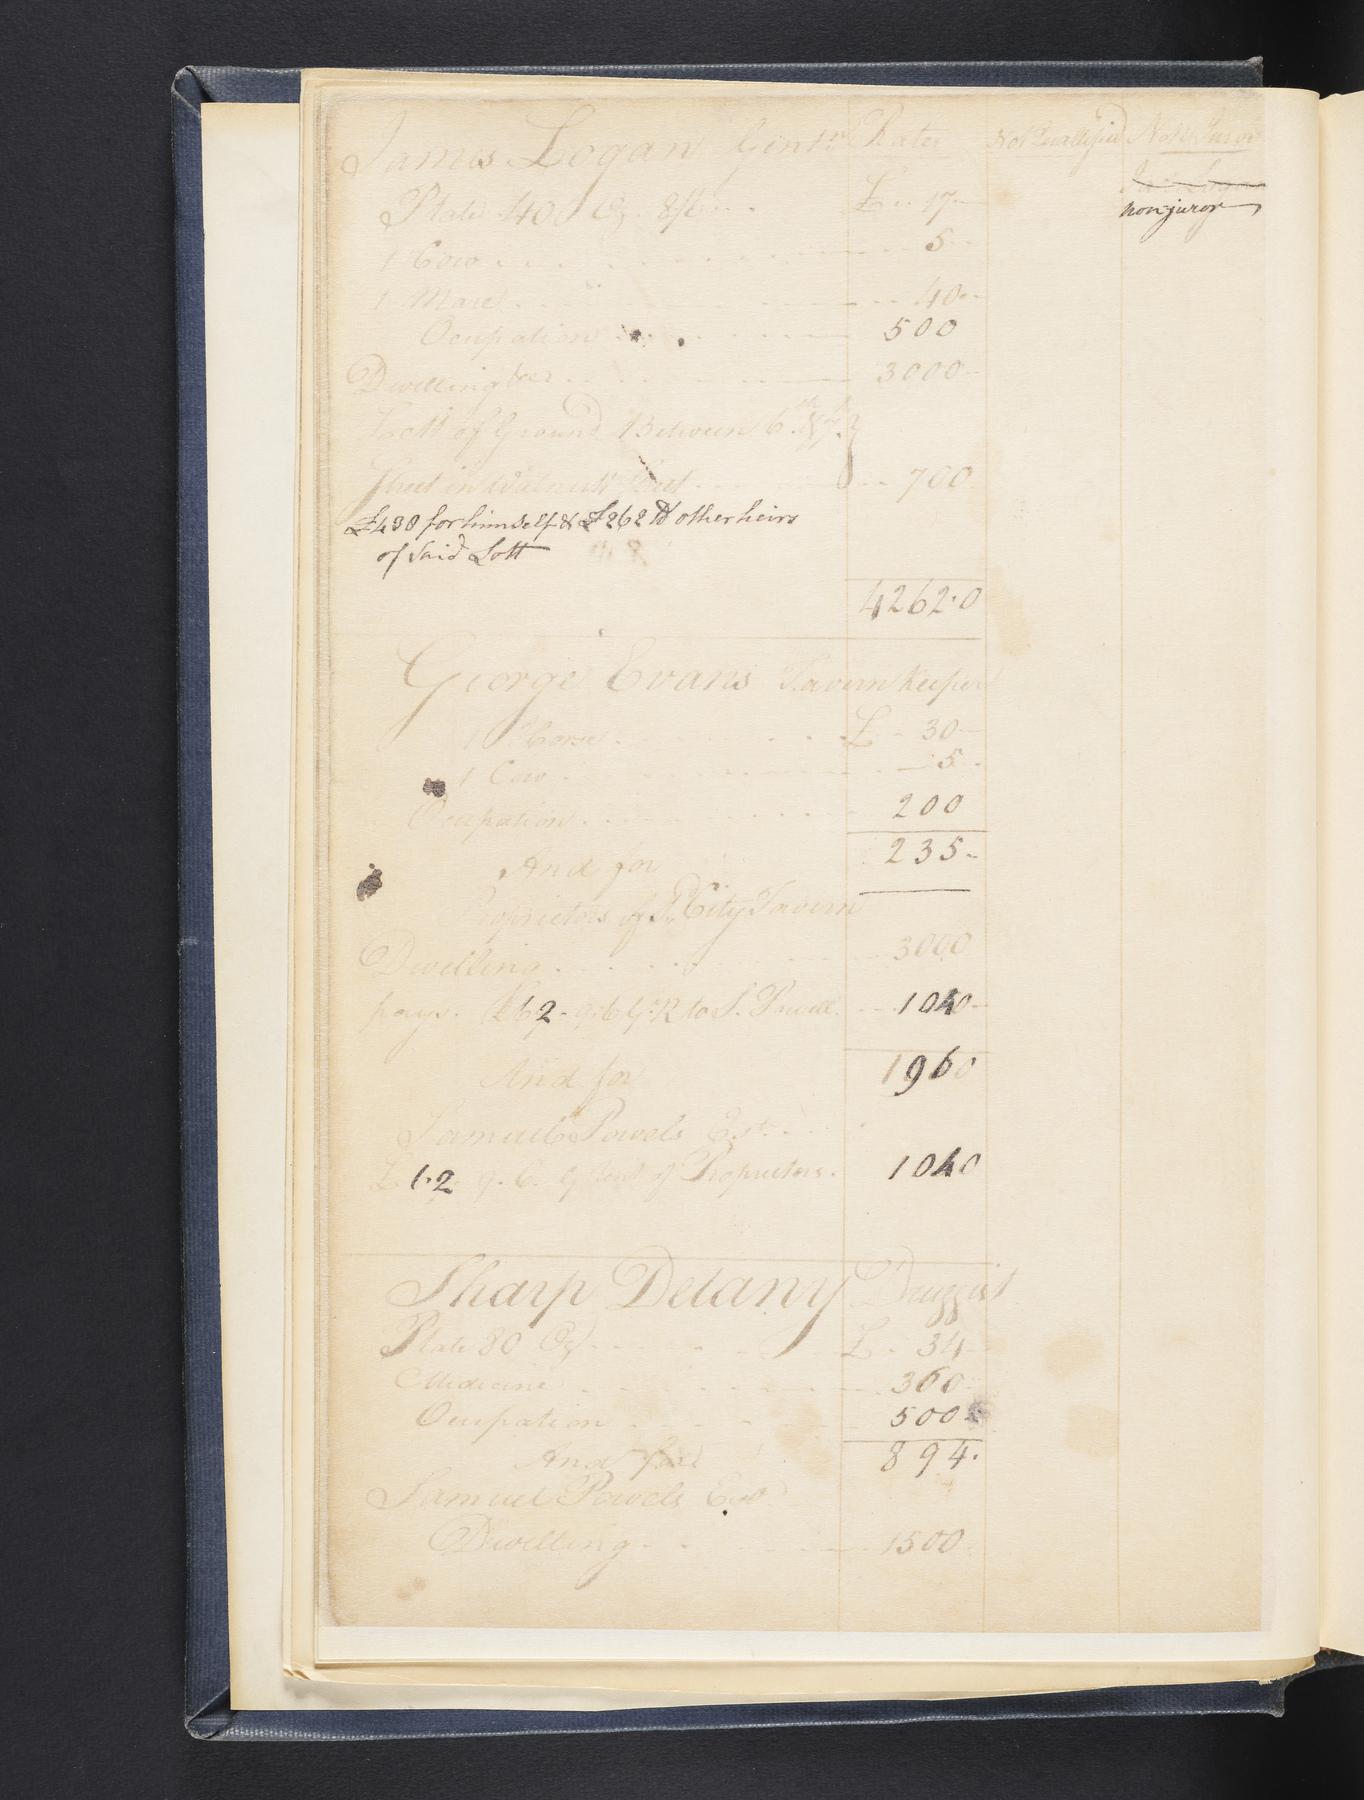 James Logan Gentn Rates Not Quallified Non Juror
Plate 40 Oz. 8/6 £ 17
Jas Logan
nonjuror
1 Cow 5
1 Mare 40
Ocupation 500
Dwelling &c 3000
Lott of Ground Between 6th & 7th
Street in Walnutt Street 700
£430 for himself & £262 other heirs
of said Lott
4262.0
George Evans Tavern Keeper
1 Horse £ 30
1 Cow 5
Ocupation 200
And for 235
Proprietors of City Tavern
Dwelling 3000
pays £62 G:R to S. Powell 1040
1960
And for
Samuel Powels Est.
£ 62 G Rent of Proprietors. 1040
Sharp Delany Druggist
Plate 80 Oz £ 34
Medicine 360
Ocupation 500
And for 894.
Samuel Powels Est
Dwelling 1500